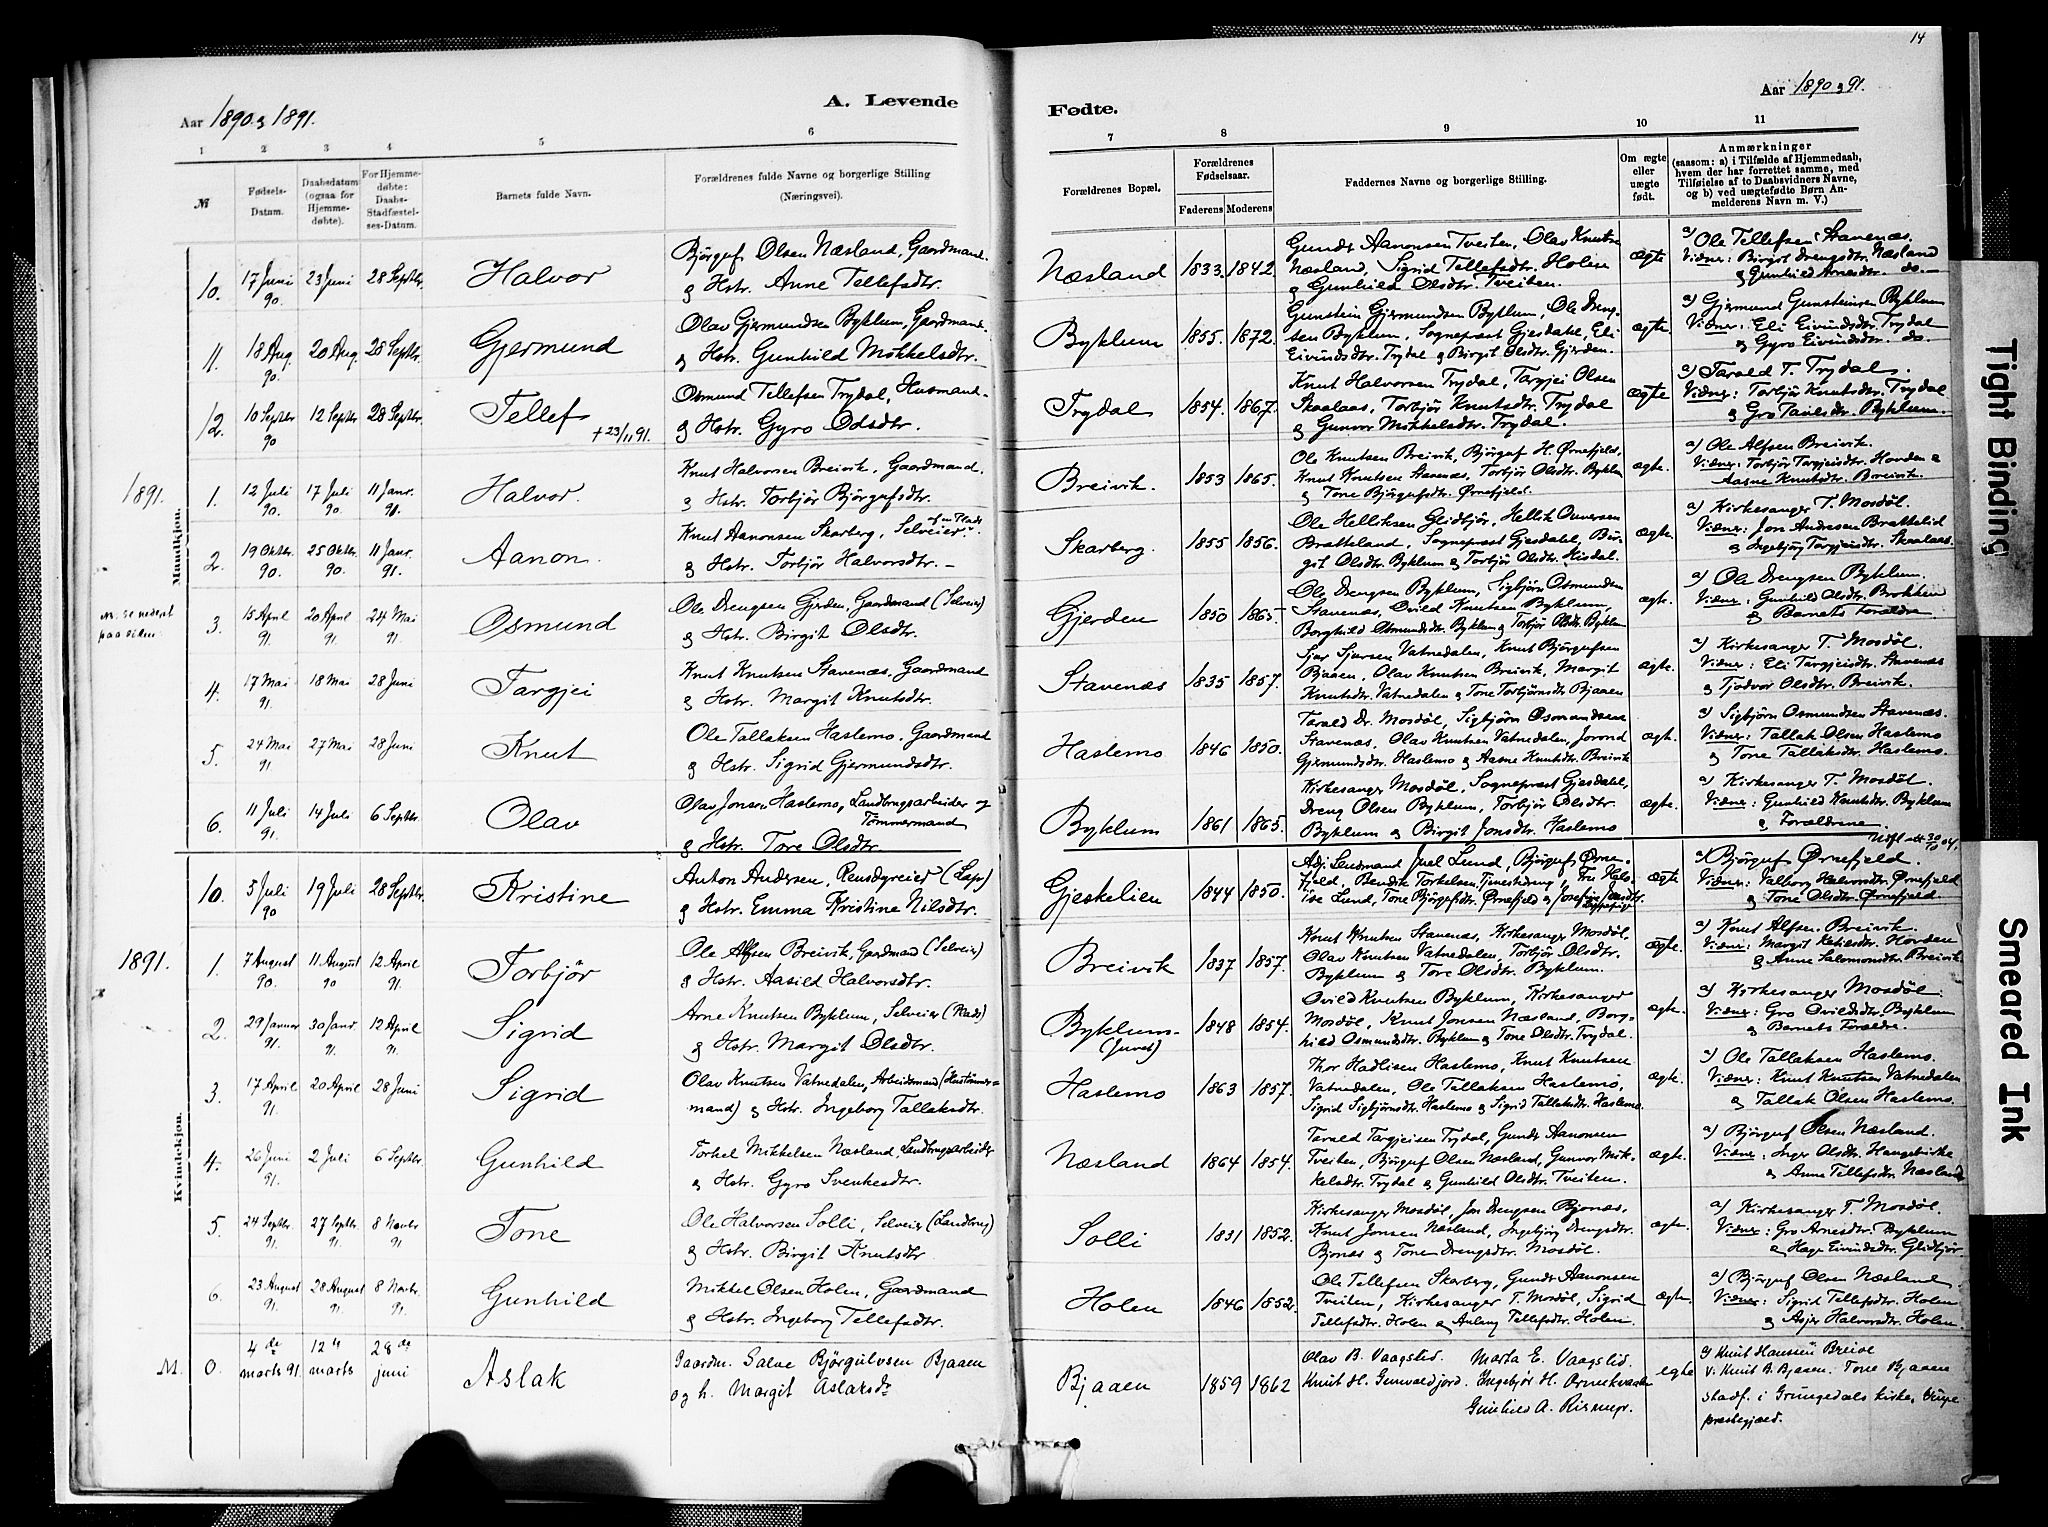 14
Aar 1890 & 1891.
A. Levende
Fødte.
Aar 1890 & 91.
1 2 3 4 5 6 7 8 9 10 11
№
Fødsels-Datum.
Daabsdatum (ogsaa for Hjemme-døbte).
For Hjemme-døbte: Daabs-Stadfæstel-ses-Datum.
Barnets fulde Navn.
Forældrenes fulde Navne og borgerlige Stilling
(Næringsvei).
Forældrenes Bopæl.
Forældrenes Fødselsaar.
Faderens Moderens
Faddernes Navne og borgerlige Stilling.
Om ægte eller uægte født.
Anmærkninger
(saasom: a) i Tilfælde af Hjemmedaab,
hvem der har forrettet samme, med
Tilføielse af to Daabsvidners Navne,
og b) ved uægtefødte Børn An-
melderens Navn m. V.)
Mandkjøn.
10. 17 Juni 90. 23 Juni 28 Septbr. Halvor
Bjørguf Olsen Næsland, Gaardmand.
& Hstr. Anne Tellefsdtr.
Næsland 1833. 1842.
Gunds Aanonsen Tveiten, Olav Knutsen
Næsland, Sigrid Tellefsdtr. Holen
& Gunhild Olsdtr. Tveiten.
ægte
a) Ole Tellefsen Stavenæs.
Vidner: Birgit Drengsdtr. Næsland
& Gunhild Arnesdtr. do.
11. 18 Aug. 90. 20 Aug. 28 Septbr. Gjermund
Olav Gjermundsen Byklum, Gaardmand.
& Hstr. Gunhild Mikkelsdtr.
Byklum 1855. 1872.
Gunstein Gjermundsen Byklum, Ole Dreng-
sen Byklum, Sogneprest Gjesdahl, Eli
Eivindsdtr. Trydal & Birgit Olsdtr. Gjerden.
ægte.
a) Gjermund Gunsteinsen Byklum
Vidner: Eli Eivindsdtr. Trydal
& Gyro Eivindsdtr. do.
12. 10 Septbr 90 12 Septbr 28 Septbr. Tellef
+ 23/11 91.
Osmund Tellefsen Trydal, Husmand
& Hstr. Gyro Odsdtr.
Trydal 1854. 1867.
Knut Halvorsen Trydal, Targjei Olsen
Skaalaas, Torbjør Knutsdtr. Trydal
& Gunvor Mikkelsdtr. Trydal.
ægte
a) Tarald T. Trydal.
Vidner: Torbjør Knutsdtr. Trydal
& Gro Tarlesdtr. Byklum.
1891.
1. 12 Juli 90. 17 Juli 90. 11 Janr. 91. Halvor.
Knut Halvorsen Breivik, Gaardmand.
& Hstr. Torbjør Bjørgufsdtr.
Breivik. 1853 1865.
Ole Knutsen Breivik, Bjørguf H. Ørnefjeld,
Knut Knutsen Stavenæs, Torbjør Olsdtr. Byklum
& Tone Bjørgufsdtr. Ørnefjeld.
ægte.
a) Ole Alfsen Breivik.
Vidner: Torbjør Targjeisdtr. Hovden &
Aasne Knutsdtr. Breivik.
2. 19 Oktbr. 90. 25 Oktbr. 90. 11 Janr. 91. Aanon.
Knut Aanonsen Skarberg, Selveier af en Plads
& Hstr. Torbjør Halvorsdtr.
Skarberg. 1855 1856.
Ole Helliksen Glidbjør, Hellik Ouversen
Bratteland, Sogneprest Gjesdahl, Bir-
git Olsdtr. Byklum & Torbjør Olsdtr. Hisdal.
ægte.
a) Kirkesanger T. Mosdøl.
Vidner: Jon Andresen Brattelid
& Ingebjørg Targjeisdtr. Skaalaas.
3. 15 April 91. 20 April 91. 24 Mai 91. Osmund
Ole Drengsen Gjerden, Gaardmand (Selveier)
& Hstr. Birgit Olsdtr.
Gjerden 1850 1865.
Ole Drengsen Byklum, Sigbjørn Osmundsen
Stavenæs, Ovild Knutsen Byklum,
Borghild Osmundsdtr. Byklum & Torbjør Olsdtr. Byklum
ægte.
a) Ole Drengsen Byklum.
Vidner: Gunhild Olsdtr. Brokken
& Barnets Forældre
4. 17 Mai 91. 18 Mai 28 Juni Targjei
Knut Knutsen Stavenæs, Gaardmand
& Hstr. Margit Knutsdtr.
Stavenæs 1835 1857.
Sjur Sjursen Vatnedalen, Knut Bjørgufsen
Bjaaen, Olav Knutsen Breivik, Margit
Knutsdtr. Vatnedalen & Tone Torbjørnsdtr Bjaaen
ægte.
a) Kirkesanger T. Mosdøl.
Vidner: Eli Targjeisdtr. Stavenæs
& Tjodvor Olsdtr. Breivik.
5. 24 Mai 91. 27 Mai 28 Juni Knut
Ole Tallaksen Haslemo, Gaardmand
& Hstr. Sigrid Gjermundsdtr.
Haslemo 1846 1850.
Tarald Dr. Mosdøl, Sigbjørn Osmundsen
Stavenæs, Olav Knutsen Vatnedalen, Jorond
Gjermundsdtr. Haslemo & Aasne Knutsdtr. Breivik
ægte.
a) Sigbjørn Osmundsen Stavenæs.
Vidner: Tallak Olsen Haslemo
& Tone Tallaksdtr. Haslemo.
6. 11 Juli 91. 14 Juli 6 Septbr. Olav
Olav Jonsen Haslemo, Landbrugsarbeider og
Tømmermand
& Hstr. Tore Olsdtr.
Byklum 1861 1865.
Kirkesanger Mosdøl, Sogneprest Gjesdahl,
Dreng Olsen Byklum, Torbjør Olsdtr.
Byklum & Birgit Jonsdtr. Haslemo
ægte.
a) Kirkesanger T. Mosdøl.
Vidner: Gunhild Knutsdtr. Byklum
& Forældrene.
Kvindekjøn.
10. 5 Juli 90 19 Juli 28 Septbr. Kristine
Anton Andersen, Rensdyreier (Lap)
& Hstr. Emma Kristine Nilsdtr.
Gjeskelien 1844 1850.
Adj. Lensmand Juel Lund, Bjørguf Ørne-
fjeld, Bendik Torkelsen, Tjenestedreng,
Lund, Tone Bjørgufsdtr. Ørnefjeld &
ægte
a) Bjørguf Ørnefjeld.
Vidner: Valborg Halvorsdtr. Ørnefjeld
& Tone Olsdtr. Ørnefjeld.
1891.
1. 7 August 90. 11 August 90 12 April 91. Torbjør
Ole Alfsen Breivik, Gaardmand (Selveier)
& Hstr. Aasild Halvorsdtr.
Breivik 1837 1857.
Knut Knutsen Stavenæs, Kirkesanger Mosdøl,
Olav Knutsen Vatnedalen, Torbjør Olsdtr.
Byklum & Tore Olsdtr. Byklum.
ægte.
a) Knut Alfsen Breivik.
Vidner: Margit Ketilsdtr. Hovden
& Anne Salomonsdtr. Breivik
2. 29 Januar 91. 30 Janr. 91. 12 April 91. Sigrid
Arne Knutsen Byklum, Selveier (Plads)
& Hstr. Margit Olsdtr.
Byklum-
(Juvet)
1848 1854.
Ovild Knutsen Byklum, Kirkesanger
Mosdøl, Knut Jonsen Næsland, Borg-
hild Osmundsdtr. Byklum & Tone Olsdtr. Trydal.
ægte.
a) Kirkesanger Mosdøl.
Vidner: Gro Ovildsdtr. Byklum
& Barnets Forældre.
3. 17 April 91. 20 April 28 Juni Sigrid
Olav Knutsen Vatnedalen, Arbeidsmand (Hustømmer-
mand) & Hstr. Ingeborg Tallaksdtr.
Haslemo 1863 1857.
Thor Hadlisen Haslemo, Knut Knutsen
Vatnedalen, Ole Tallaksen Haslemo,
Sigrid Sigbjørnsdtr. Haslemo & Sigrid Tallaksdtr. Haslemo.
ægte.
a) Ole Tallaksen Haslemo.
Vidner: Knut Knutsen Vatnedalen
& Tallak Olsen Haslemo.
4. 26 Juni 91. 2 Juli 6 Septbr. Gunhild
Torkel Mikkelsen Næsland, Landbrugsarbeider
& Hstr. Gyro Svenkesdtr.
Næsland 1864 1854.
Tarald Targjeisen Trydal, Gunds Aanonsen
Tveiten, Bjørguf Olsen Næsland, Gunvor Mik-
kelsdtr. Trydal & Gunhild Olsdtr. Tveiten.
ægte.
a) Bjørguf Olsen Næsland.
Vidner: Inger Olsdtr. Haugebirke
& Anne Tellefsdtr. Næsland
5. 24 Septbr. 91. 27 Septbr. 91. 8 Novbr. 91. Tone
Ole Halvorsen Solli, Selveier (Landbrug)
& Hstr. Birgit Knutsdtr
Solli 1831 1852.
Kirkesanger Mosdøl, Jon Drengsen Bjønæs,
Knut Jonsen Næsland, Ingebjørg Drengsdtr.
Bjønæs & Tone Drengsdtr. Mosdøl.
ægte.
a) Kirkesanger T. Mosdøl.
Vidner: Gro Arnesdtr. Byklum
& Hæge Eivindsdtr. Glidbjør.
6. 23 August 91. 28 August 91. 8 Novbr. 91. Gunhild
Mikkel Olsen Holen, Gaardmand
& Hstr. Ingeborg Tellefsdtr.
Holen 1846 1852.
Ole Tellefsen Skarberg, Gunds Aanonsen
Tveiten, Kirkesanger T. Mosdøl, Sigrid
Tellefsdtr. Holen & Aslaug Tellefsdtr. Holen.
ægte.
a) Bjørguf Olsen Næsland.
Vidner: Sigrid Tellefsdtr. Holen
& Asjer Halvorsdtr. Holen.
M. 0. 4de marts 91 12te marts 28de juni Aslak
Gaardm. Salve Bjørgulvsen Bjaaen
og h. Margit Aslaksdr
Bjaaen 1859 1862
Olav B. Vaagslid. Marta E. Vaagslid.
Knut H.
Gunhild A.
egte
a) Knut Hansen Breive
V. Knut B. Bjaaen. Tone Bjaaen
stadf. i Grungedals kirke,
præstegjæld.
Tight Binding
Smeared Ink